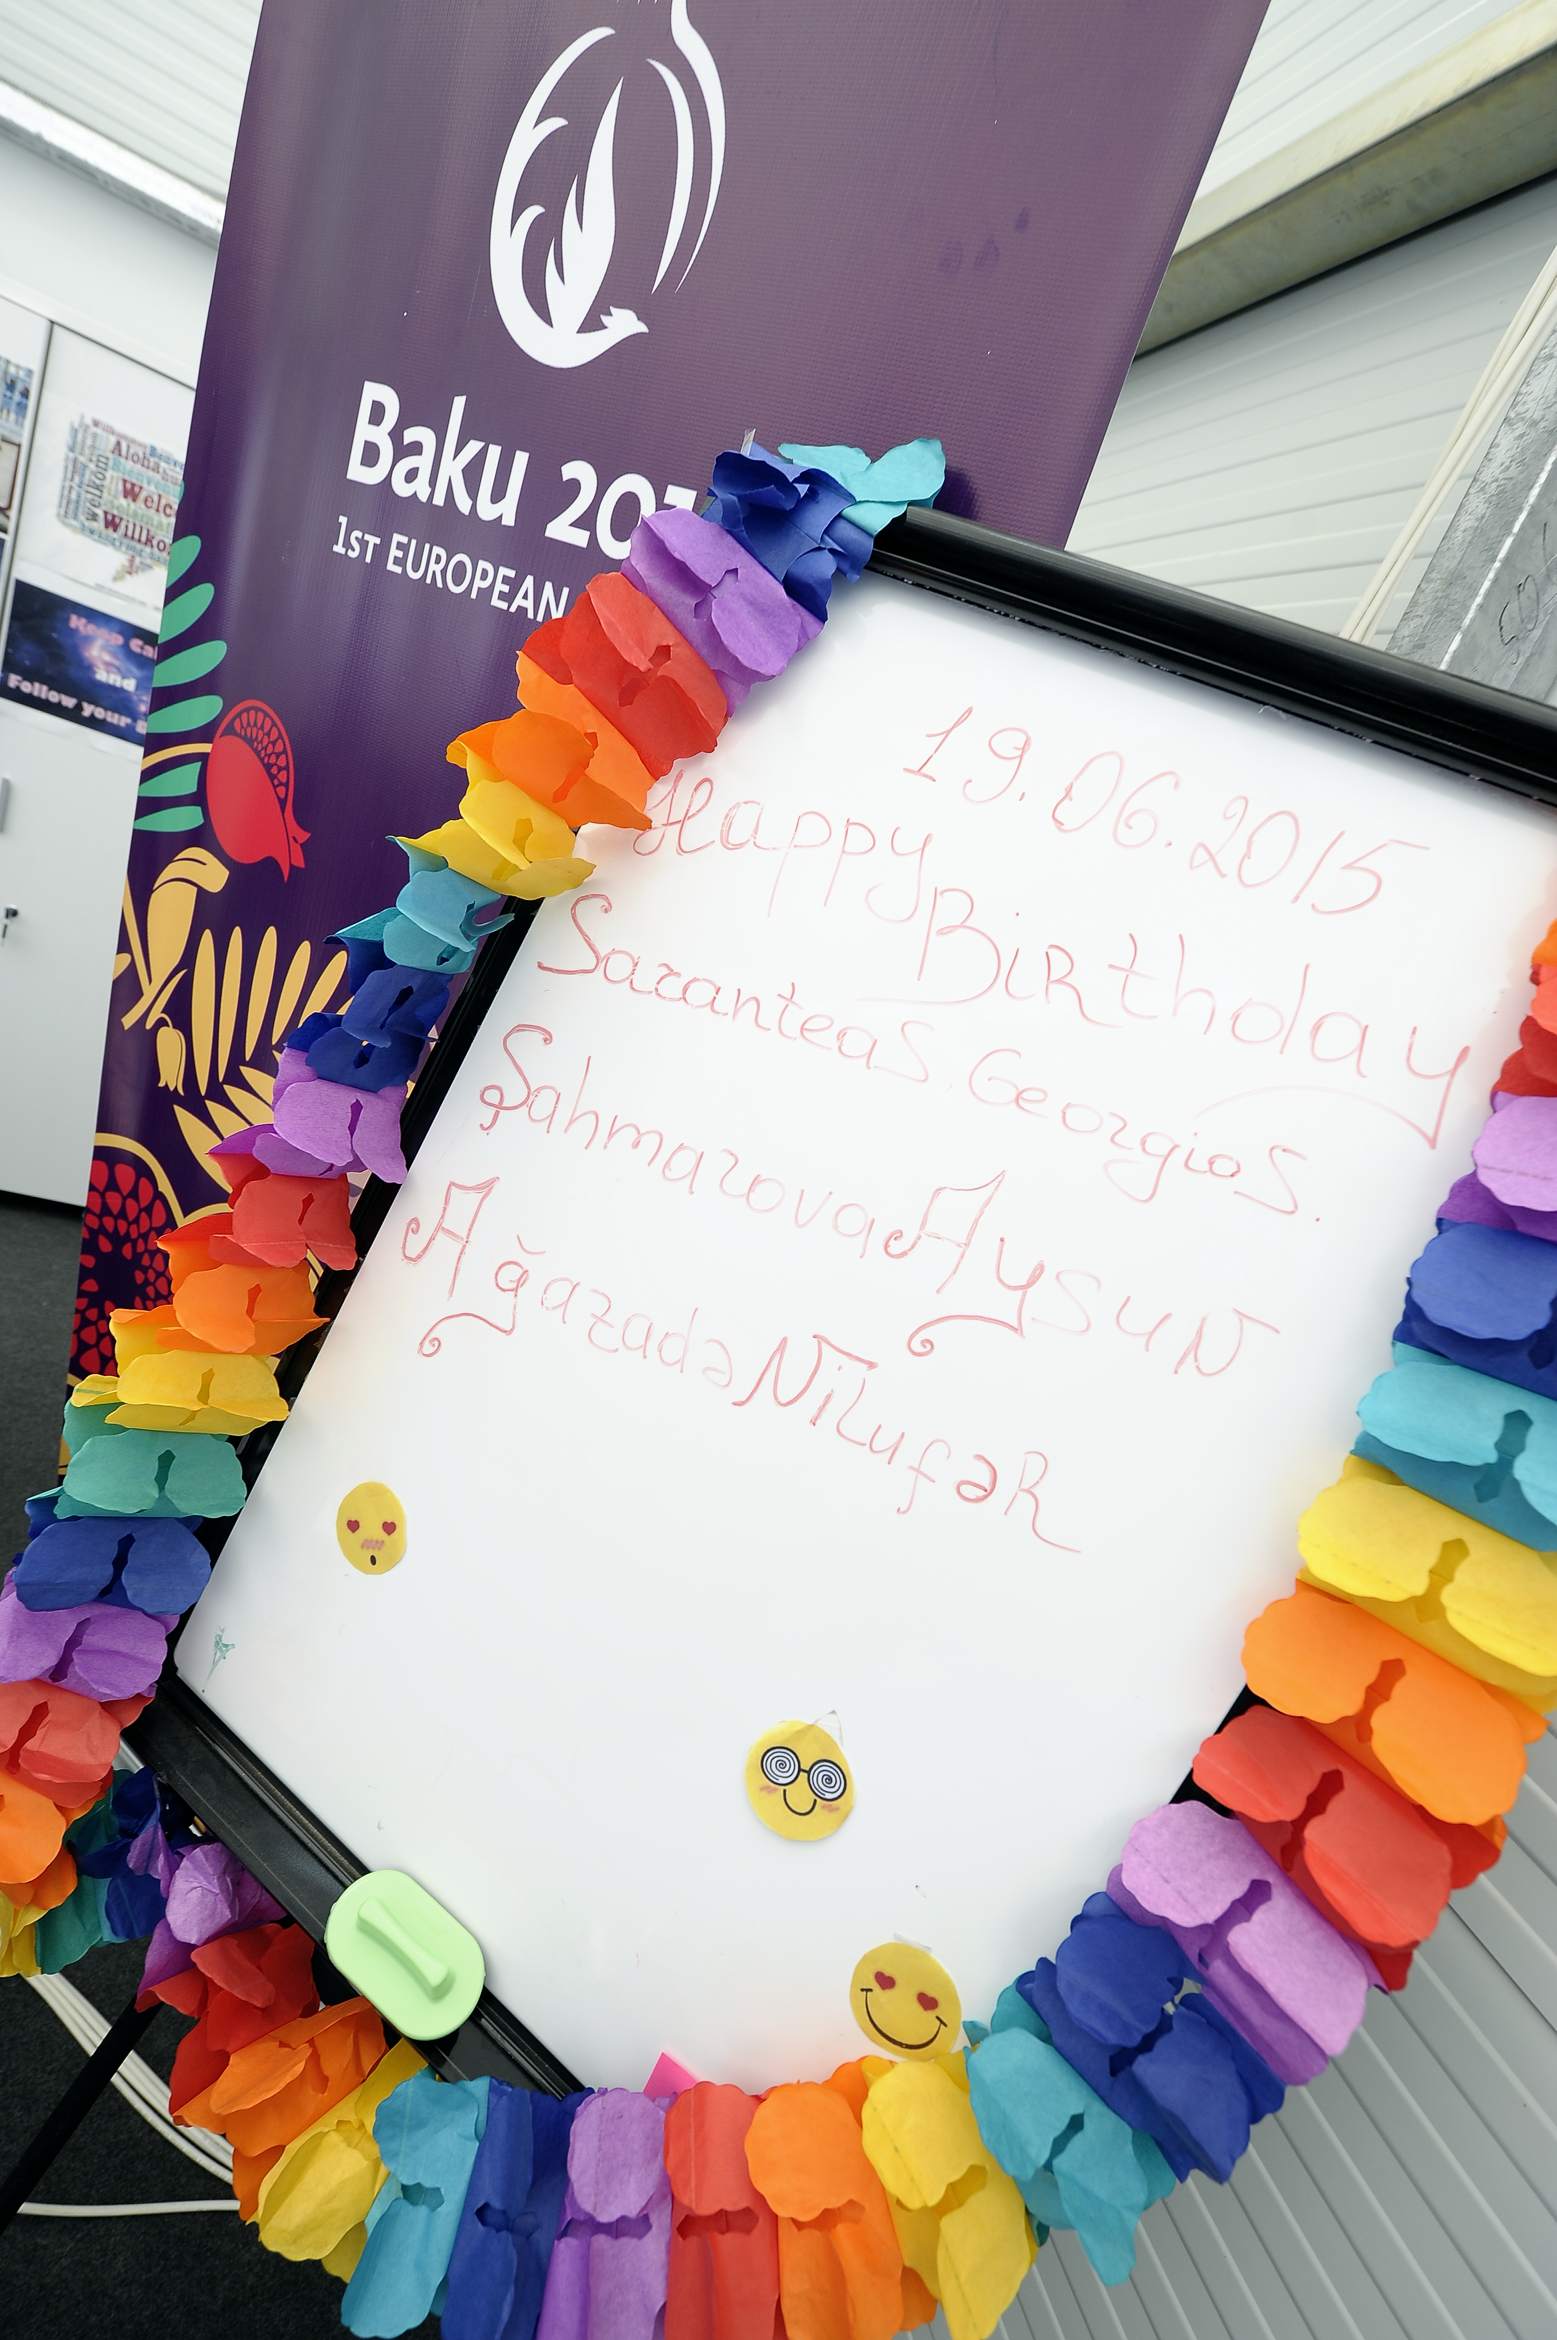 Baku 201
1ST EUROPEAN
Aloha
Welc
Willko
Welkom
Keep Ca
and
Follow your
19.06.2015
Happy Birthday
Saranteas Georgios.
Şahmarova Aysun
Ağazadə Nilufər